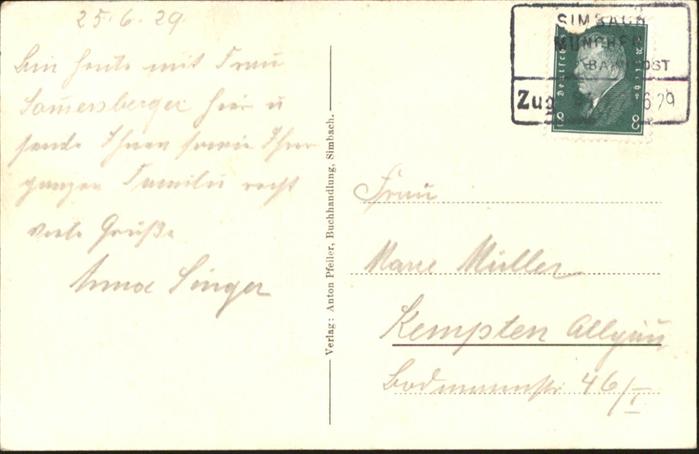 25.6.29
Bin heute mit Frau
Sammersberger hier u
sende Ihnen sowie Ihrer
ganzen Familie recht
viele Grüße
Anna Singer
Verlag: Anton Pfeiler, Buchhandlung, Simbach.
SIMBACH
MÜNCHEN
BAHNPOST
Zug
6 29
Deutsches Reich
8 8
Frau
Marie Müller
Kempten Allgäu
Bodmannstr 46/I